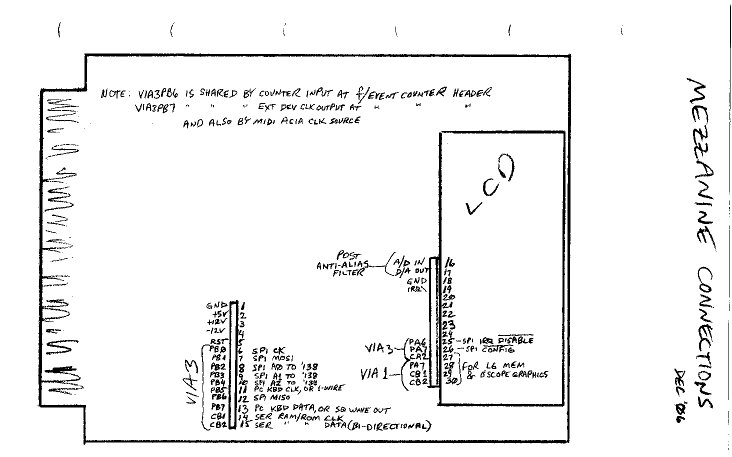 NOTE: VIA3PB6 IS SHARED BY COUNTER INPUT AT f/EVENT COUNTER HEADER
VIA3PB7 " " " EXT DEV CLK OUTPUT AT " " "
AND ALSO BY MIDI ACIA CLK SOURCE
LCD
MEZZANINE CONNECTIONS
DEC '06
POST
ANTI-ALIAS
FILTER
A/D IN 16
D/A OUT 17
GND 18
IRQ\ 19
20
21
22
23
24
VIA3
PA6 25 - SPI IRQ DISABLE
PA7 26 - SPI CONFIG
CA2 27
VIA1
PA7 28 FOR LG MEM
CB1 29 & OSCOPE GRAPHICS
CB2 30
GND 1
+5V 2
+12V 3
-12V 4
RST 5
VIA3
PB0 6 SPI CK
PB1 7 SPI MOSI
PB2 8 SPI A0 TO '138
PB3 9 SPI A1 TO '138
PB4 10 SPI A2 TO '138
PB5 11 PC KBD CLK, OR 1-WIRE
PB6 12 SPI MISO
PB7 13 PC KBD DATA, OR SQ WAVE OUT
CB1 14 SER RAM/ROM CLK
CB2 15 SER " " DATA (BI-DIRECTIONAL)